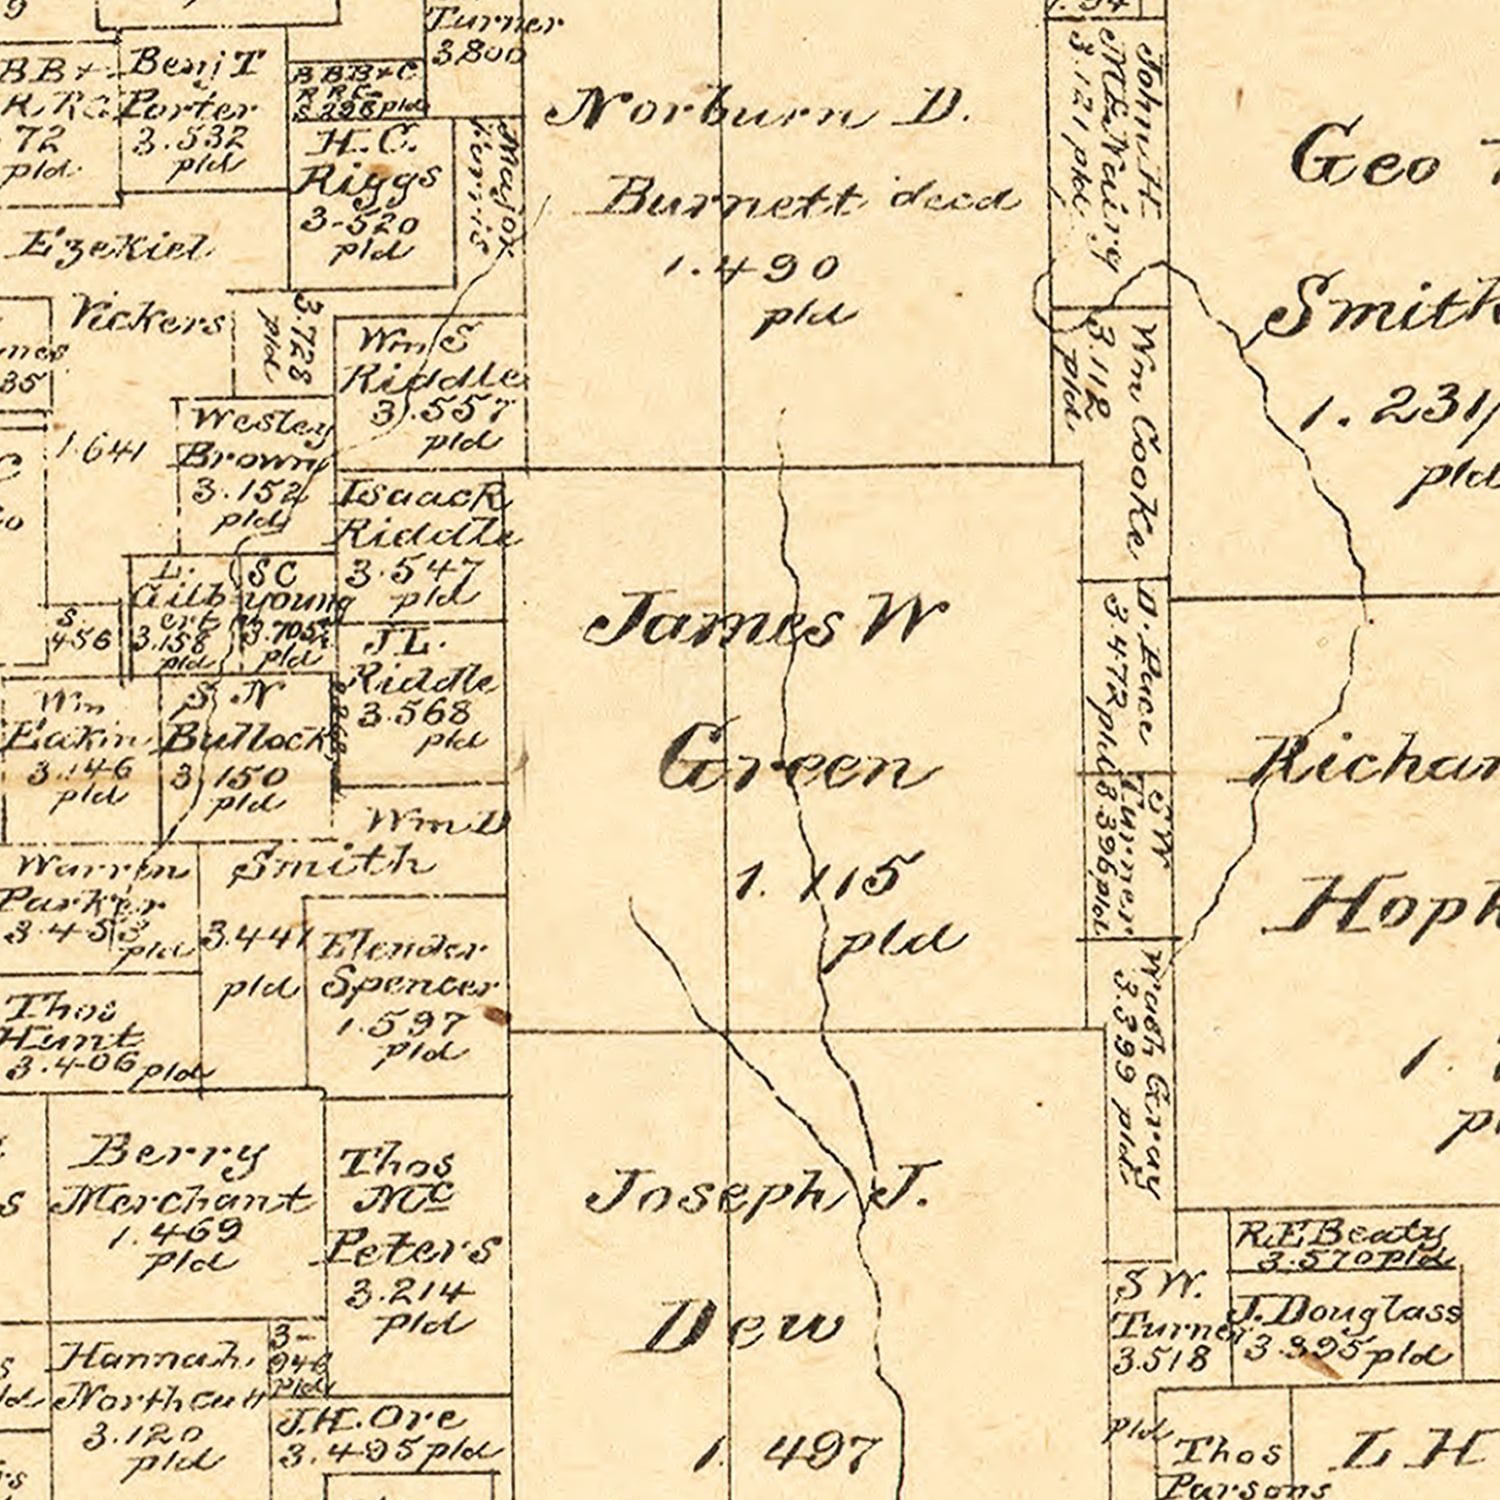 9
BB+
R RC
72
pld.
Benj T
Porter
3.532
pld
Turner
3.800
BBB+C
R RC
S 296 pld
H. C.
Riggs
3-520
pld
Major
Ferris
Norburn D.
Burnett decd
1.490
pld
John H.
McNairy
3.121 pld.
Geo
Smith
1.231
pld
Ezekiel
Vickers
1.641
3.728
pld
35
Wm S
Riddle
3.557
pld
Wm Cooke
3.112
pld
Wesley
Brown
3.152
pld
Isaack
Riddle
3.547
pld
L.
Gilb
ert
3.158
pld
S C
young
3.705
pld
S
456
J L.
Riddle
3.568
pld
James W
Green
1.115
pld
D. Pace
3.472 pld
S W
Turner
3.396 pld
Richar
Hopk
1.
Wm
Eakin
3.146
pld
S N
Bullock
3.150
pld
Wm D
Smith
3.441
pld
Warren
Parker
3.453
pld
Elender
Spencer
1.597
pld
Thos
Hunt
3.406 pld
Wash Gray
3.399 pld.
Berry
Merchant
1.469
pld
Thos
Mc
Peters
3.214
pld
Joseph J.
Dew
1.497
R.E Beaty
3.570 pld
S W.
Turner
3.518
pld
J. Douglass
3.395 pld
Hannah
Northcutt
3.120
pld
3-
946
pld
J.H. Ore
3.495 pld
Thos
Parsons
L H